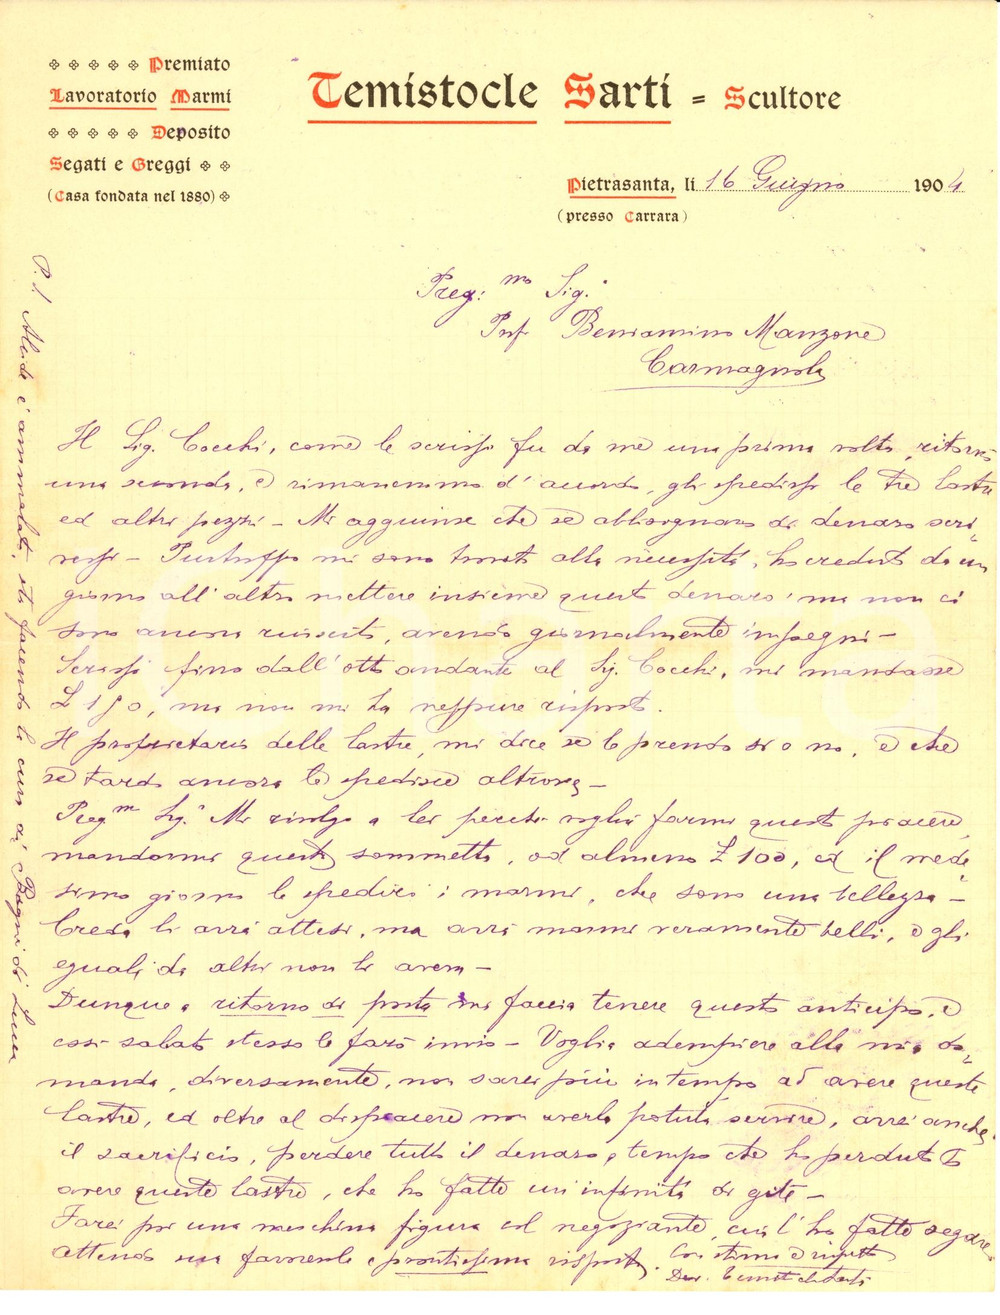 Premiato
Lavoratorio Marmi
Deposito
Segati e Greggi
(Casa fondata nel 1880)
Temistocle Sarti = Scultore
Pietrasanta, li 16 Giugno 1904
(presso Carrara)
Preg: mo Sig.
Prof Beniamino Manzone
Carmagnola
Il Sig. Cocchi, come le scrissi fu da me una prima volta, ritornò
una seconda, e rimanemmo d'accordo, gli spedissi le tre lastre
ed altri pezzi - Mi aggiunse che se abbisognavo di denaro scri-
vessi - Purtroppo mi sono trovato alla necessità, ho creduto da un
giorno all'altro mettere insieme questo denaro, ma non ci
sono ancora riuscito, avendo giornalmente impegni -
Scrissi fino dall'otto andante al Sig. Cocchi, mi mandasse
£ 150, ma non mi ha neppure risposto.
Il proprietario delle lastre, mi dice se le prendo si o no, e che
se tardo ancora le spedisce altrove -
Pregm Sig.r Mi rivolgo a lei perchè voglia farmi questo piacere,
mandarmi questa sommetta, od almeno £ 100, ed il mede-
simo giorno le spedirò i marmi, che sono una bellezza -
Creda li avrà attesi, ma avrà marmi veramente belli, e gli
eguali da altri non li aveva -
Dunque a ritorno di posta mi faccia tenere questo anticipo, e
così sabato stesso le farò invio - Voglia adempiere alla mia do-
manda, diversamente, non sarei più in tempo ad avere queste
lastre, ed oltre al dispiacere non averla potuta servire, avrei anche
il sacrificio, perdere tutto il denaro e tempo che ho perduto
avere queste lastre, che ho fatto un'infinità di gite -
Farei poi una meschina figura col negoziante, cui l'ho fatte segare.
Attendo sua favorevole e prontissima risposta. Con stima e rispetto
Dev. Temistocle Sarti
P.S. Alcide è ammalato, sta facendo la cura ai Bagni di Lucca